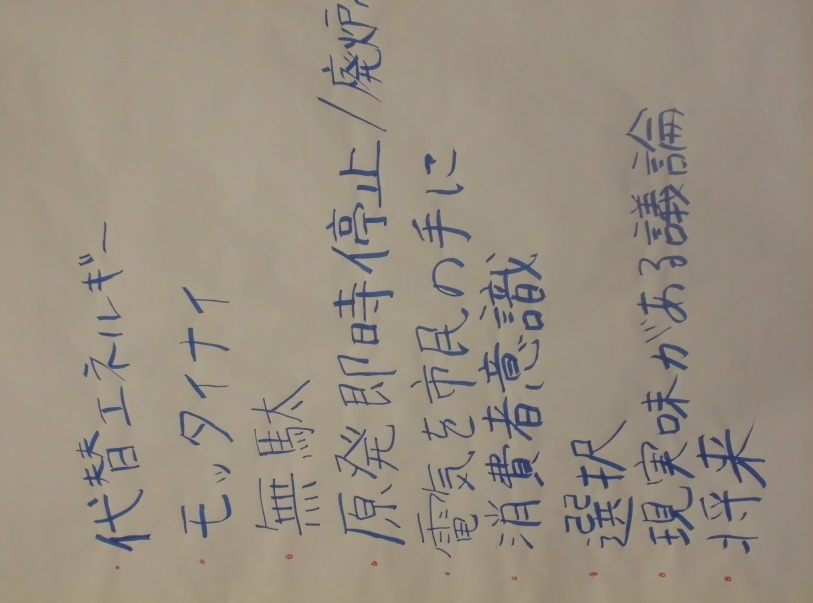 ・代替エネルギー
・モッタイナイ
・無駄
・原発即時停止/廃炉
・電気を市民の手に
・消費者意識
・選択
・現実味がある議論
・将来